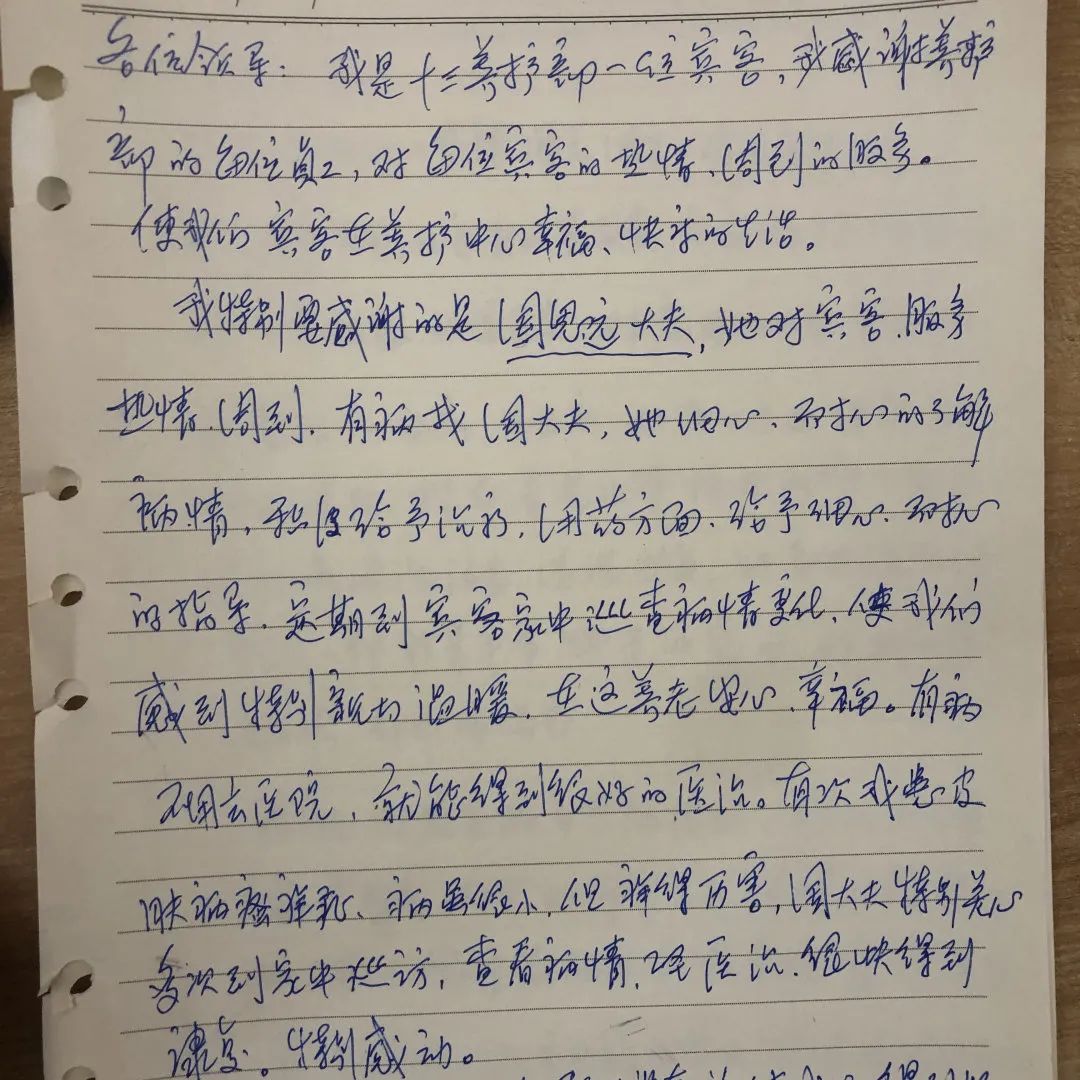 各位领导：我是十三养护部一位宾客，我感谢养护
部的每位员工，对每位宾客的热情、周到的服务。
使我们宾客在养护中心幸福、快乐的生活。
我特别要感谢的是周恩远大夫，她对宾客、服务
热情、周到、有病找周大夫，她细心、耐心的了解
病情，积极给予治疗，用药方面、给予细心、耐心
的指导、定期到宾客家中巡查病情变化，使我们
感到特别亲切温暖，在这养老安心、幸福。有病
不用去医院，就能得到很好的医治。有次我患皮
肤病瘙痒症、病虽很小，但痒得厉害，周大夫特别关心
多次到家中巡访，查看病情，医治、很快得到
康复。特别感动。